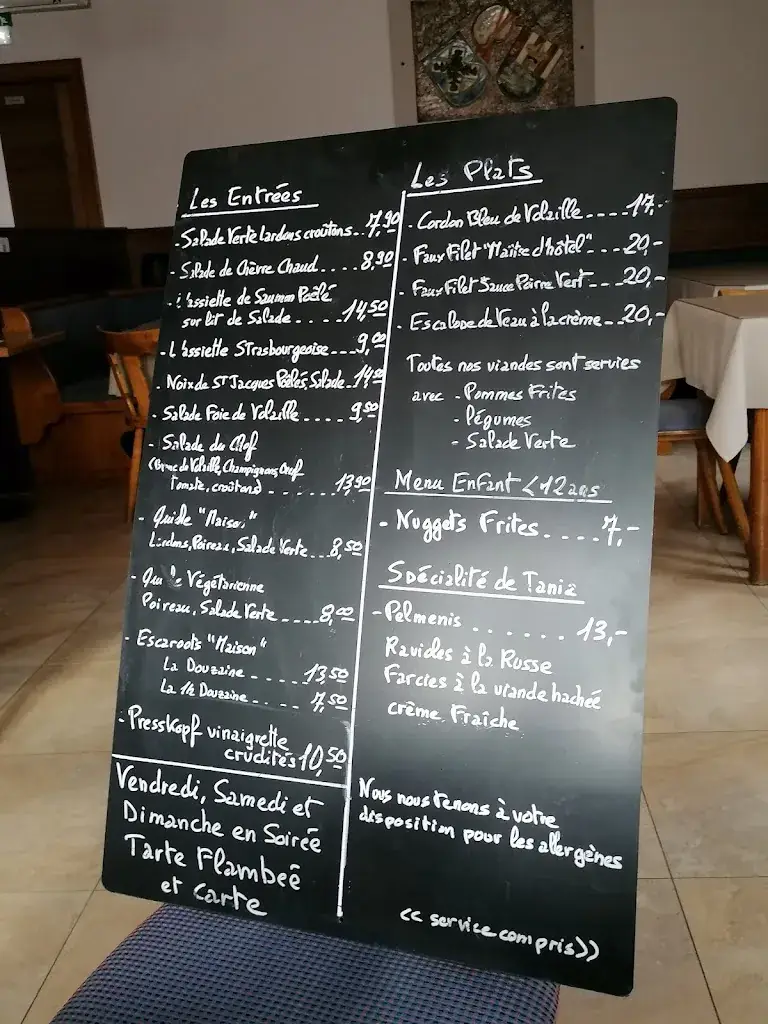 Les Entrées
- Salade Verte lardons croûtons.. 7,90
- Salade de Chèvre Chaud..... 8,90
- L'assiette de Saumon Poêlé
sur lit de Salade...... 14,50
- L'assiette Strasbourgeoise... 9,00
- Noix de St Jacques Poêlés, Salade.
- Salade Foie de Volaille.... 9,50
- Salade du Chef
Volaille, Champignons, Oeuf
Tomate, croûtons)....... 13,90
- Quiche "Maison"
Lardons, Poireau, Salade Verte... 8,50
- Quiche Végétarienne
Poireau, Salade Verte.... 8,00
- Escargots "Maison"
La Douzaine..... 13,50
La 1/2 Douzaine... 7,50
- Presskopf vinaigrette
crudités 10,50
Vendredi, Samedi et
Dimanche en Soirée
Tarte Flambeé
et Carte
Les Plats
- Cordon Bleu de Volaille.... 17,-
- Faux Filet "Maître d'hôtel".... 20,-
- Faux Filet Sauce Poivre Vert.... 20,-
- Escalope de Veau à la crème.. 20,-
Toutes nos viandes sont servies
avec - Pommes Frites
- Légumes
- Salade Verte
Menu Enfant < 12 ans
- Nuggets Frites..... 7,-
Spécialité de Tania
- Pelmenis....... 13,-
Ravioles à la Russe
Farcies à la viande hachée
crême Fraîche
Nous nous tenons à votre
disposition pour les allergènes
<< service compris>>